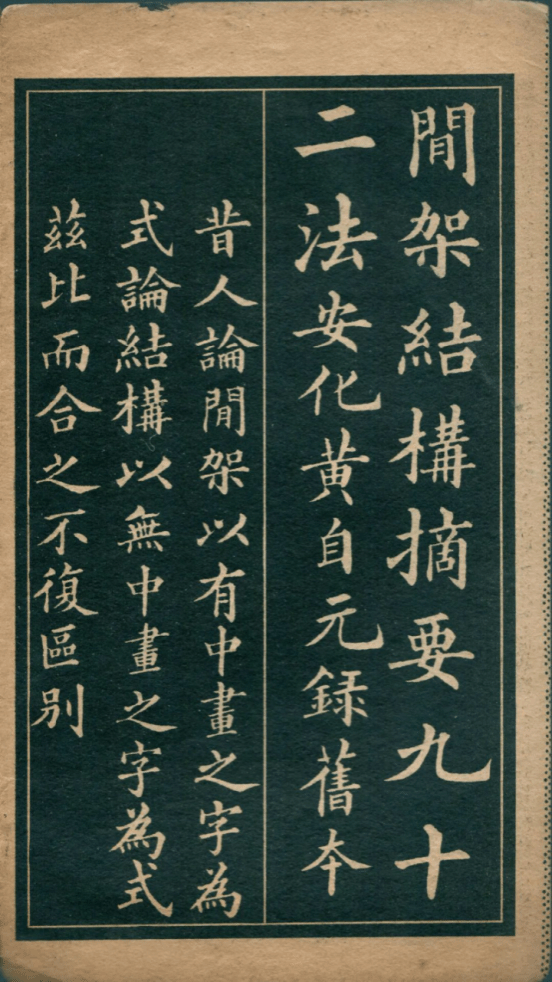 間架結構摘要九十
二法安化黄自元録舊本
昔人論間架以有中畫之字為
式論結構以無中畫之字為式
茲比而合之不復區別